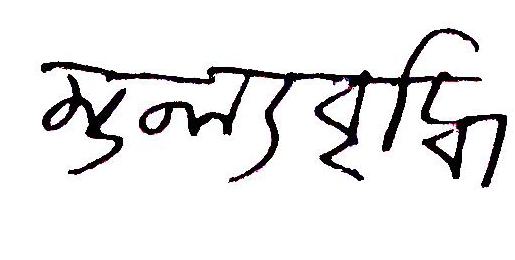 মূল্যবৃদ্ধি